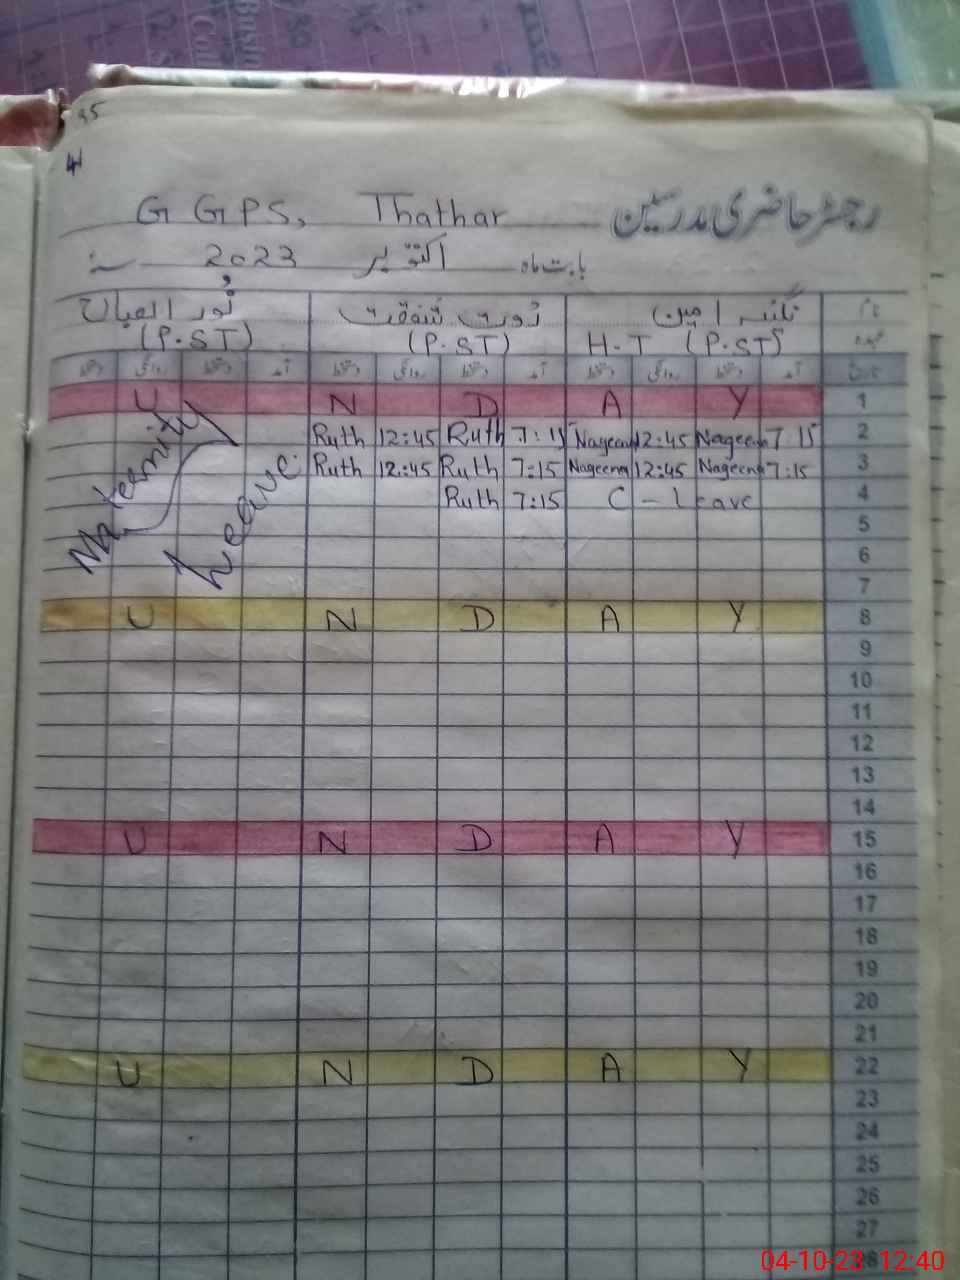 35
4
رجسٹر حاضری مدرسین
G GPS, Thathar
بابت ماہ اکتوبر 2023 سنہ
نام نگینہ امین رُوت شفقت نُور العباح
عہدہ H-T (P.ST) (P.ST) (P.ST)
تاریخ آمد دستخط روانگی دستخط آمد دستخط روانگی دستخط آمد دستخط روانگی دستخط
U N D A Y 1
Ruth 12:45 Ruth 7:15 Nageena 12:45 Nageena 7:15 2
Ruth 12:45 Ruth 7:15 Nageena 12:45 Nageena 7:15 3
Ruth 7:15 C - Leave 4
Maternity
Leave
5
6
7
U N D A Y 8
9
10
11
12
13
14
U N D A Y 15
16
17
18
19
20
21
U N D A Y 22
23
24
25
26
27
28
04-10-23 12:40